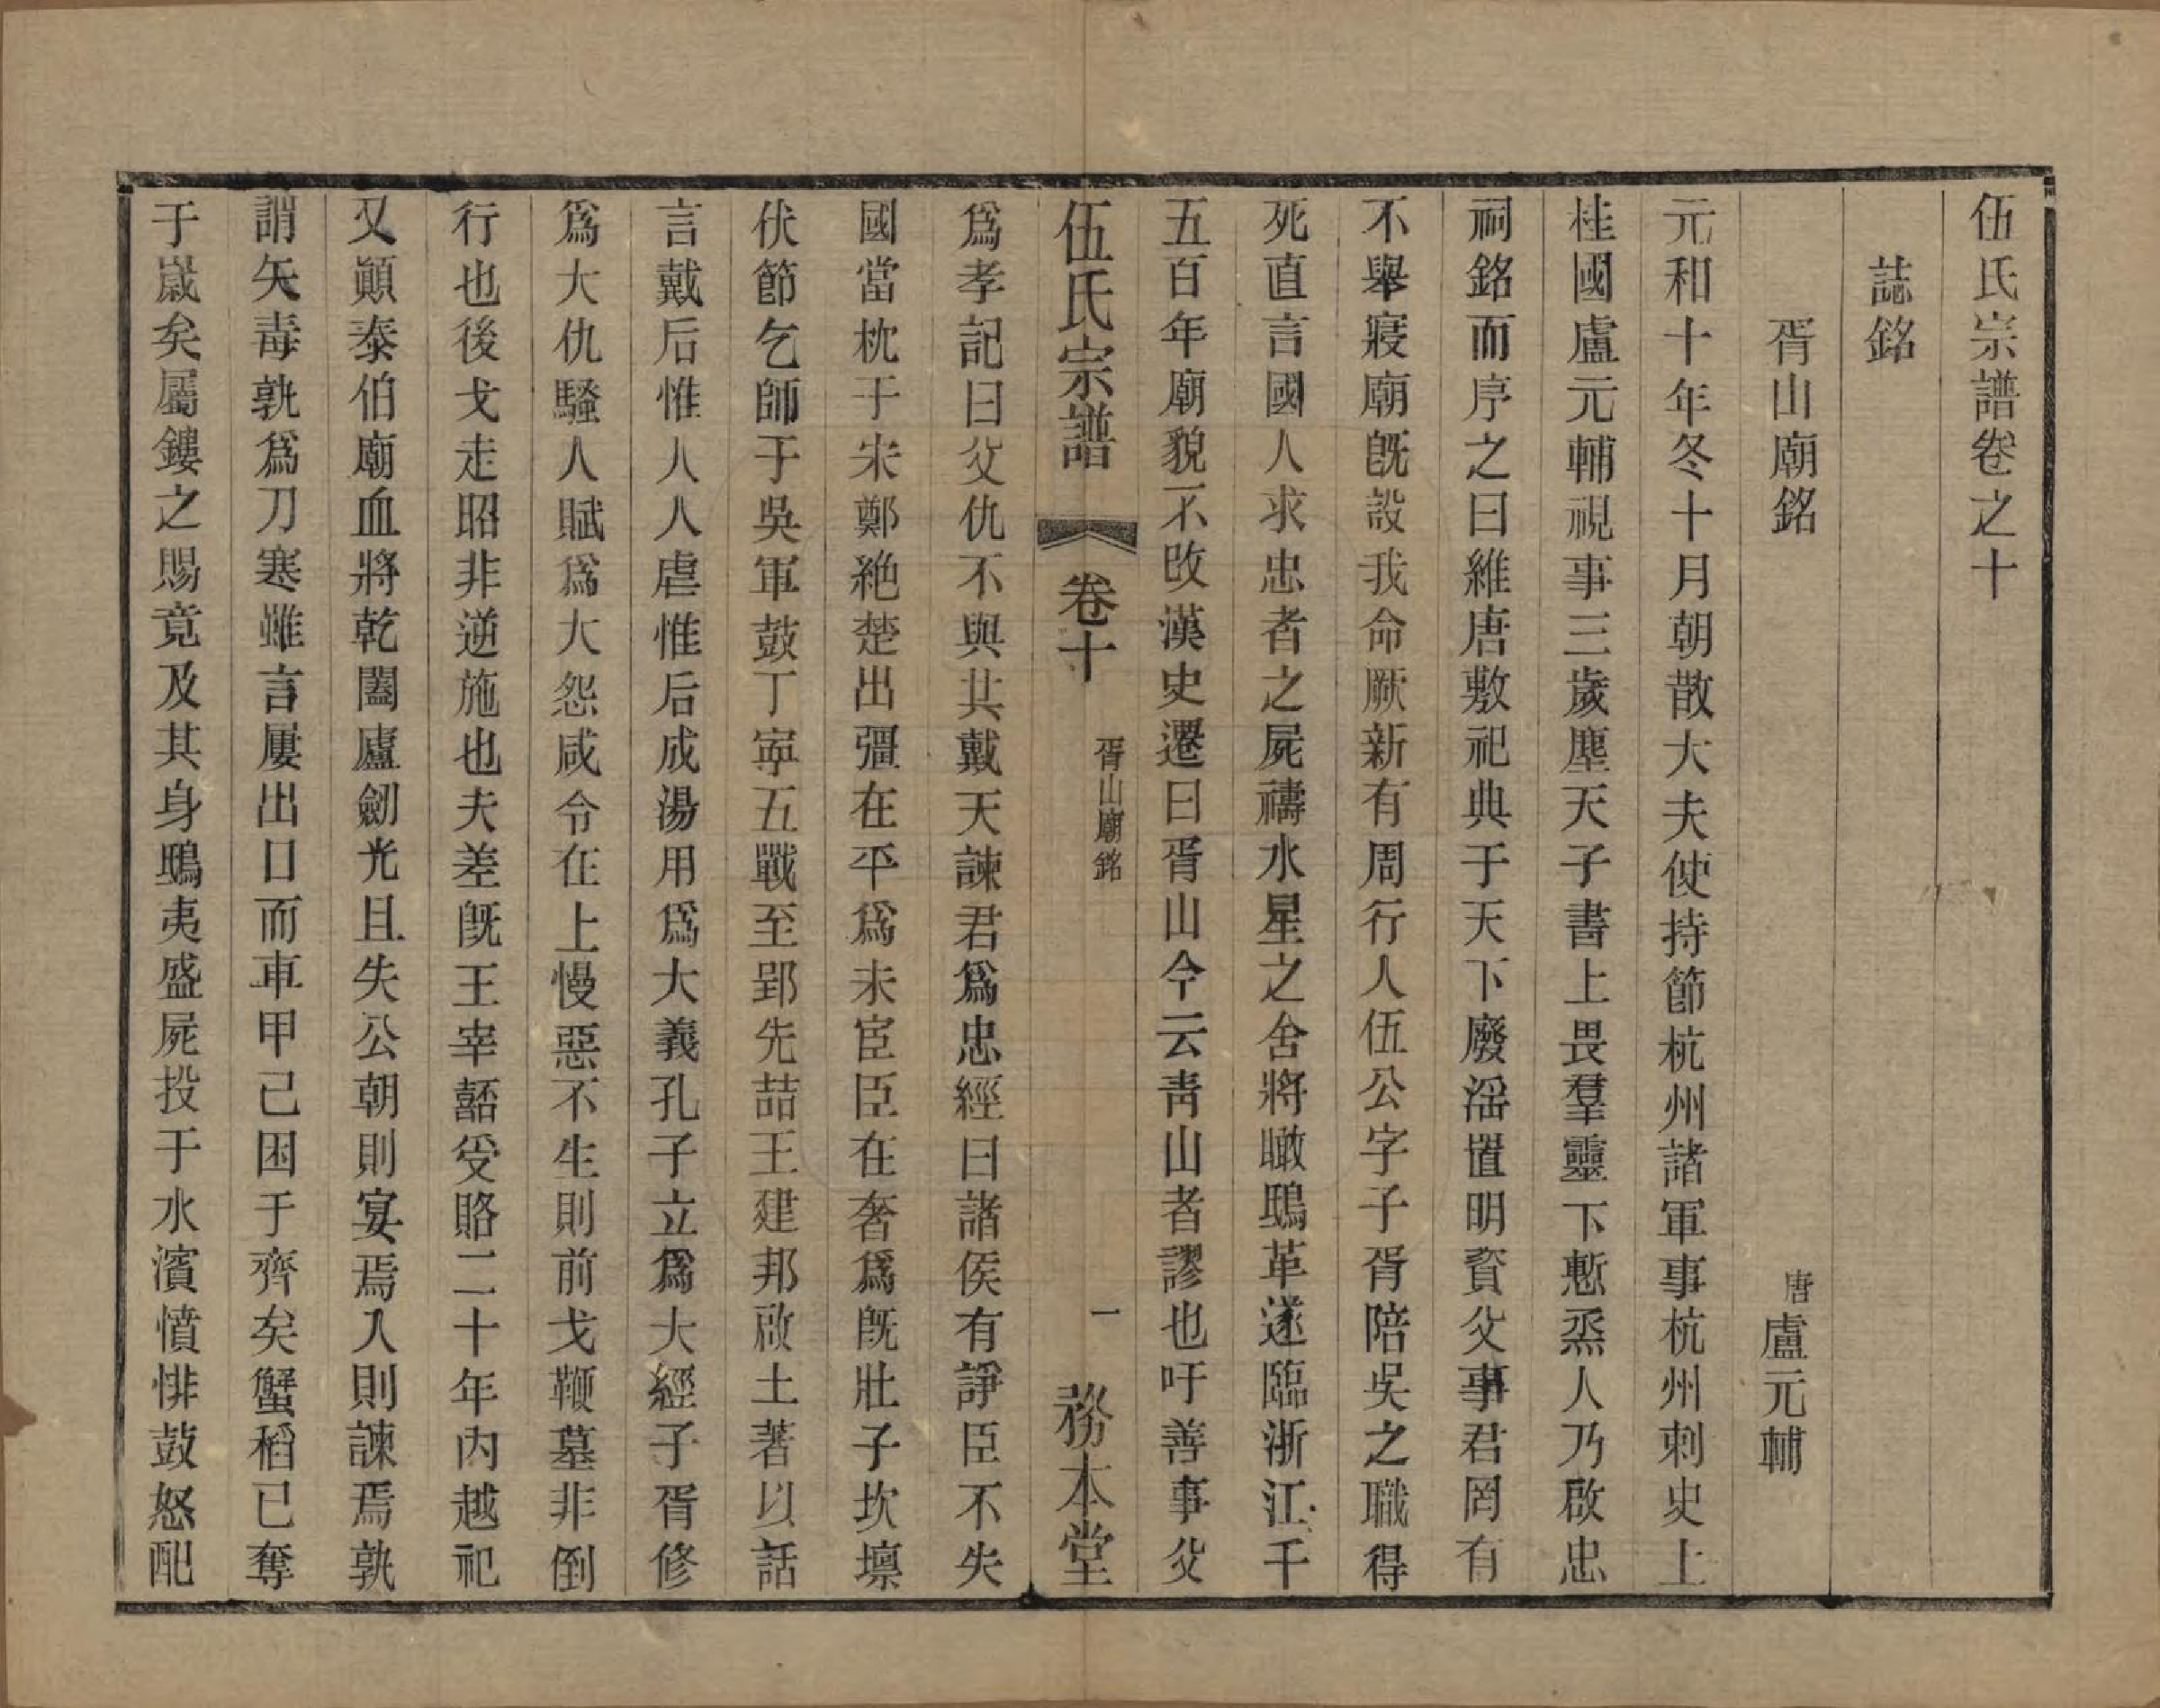 伍氏宗譜卷之十
誌銘
胥山廟銘
唐盧元輔
元和十年冬十月朝散大夫使持節杭州諸軍事杭州刺史上
桂國盧元輔視事三歲塵天子書上畏羣靈下慙烝人乃啟忠
祠銘而序之曰維唐敷祀典于天下廢淫置明資父事君罔有
不舉寢廟旣設我命厥新有周行人伍公字子胥陪吳之職得
死直言國人求忠者之屍禱水星之舍將瞰鴟革遂臨浙江千
五百年廟貌不改漢史遷曰胥山今云靑山者謬也吁善事父
伍氏宗譜 卷十 胥山廟銘 一 務本堂
爲孝記曰父仇不與共戴天諫君爲忠經曰諸侯有諍臣不失
國當枕于宋鄭絶楚出彊在平爲未宦臣在奢爲旣壯子坎壇
伏節乞師于吳軍鼓丁寧五戰至郢先喆王建邦啟土著以話
言戴后惟人人虐惟后成湯用爲大義孔子立爲大經子胥修
爲大仇騷人賦爲大怨咸令在上慢惡不生則前戈鞭墓非倒
行也後戈走昭非逆施也夫差旣王宰嚭受賂二十年內越祀
又顚泰伯廟血將乾闔廬劒光且失公朝則宴焉入則諫焉孰
謂矢毒孰爲刀寒雖言屢出口而車甲已困于齊矣蟹稻已奪
于嵗矣屬鏤之賜竟及其身鴟夷盛屍投于水濱憤悱鼓怒配